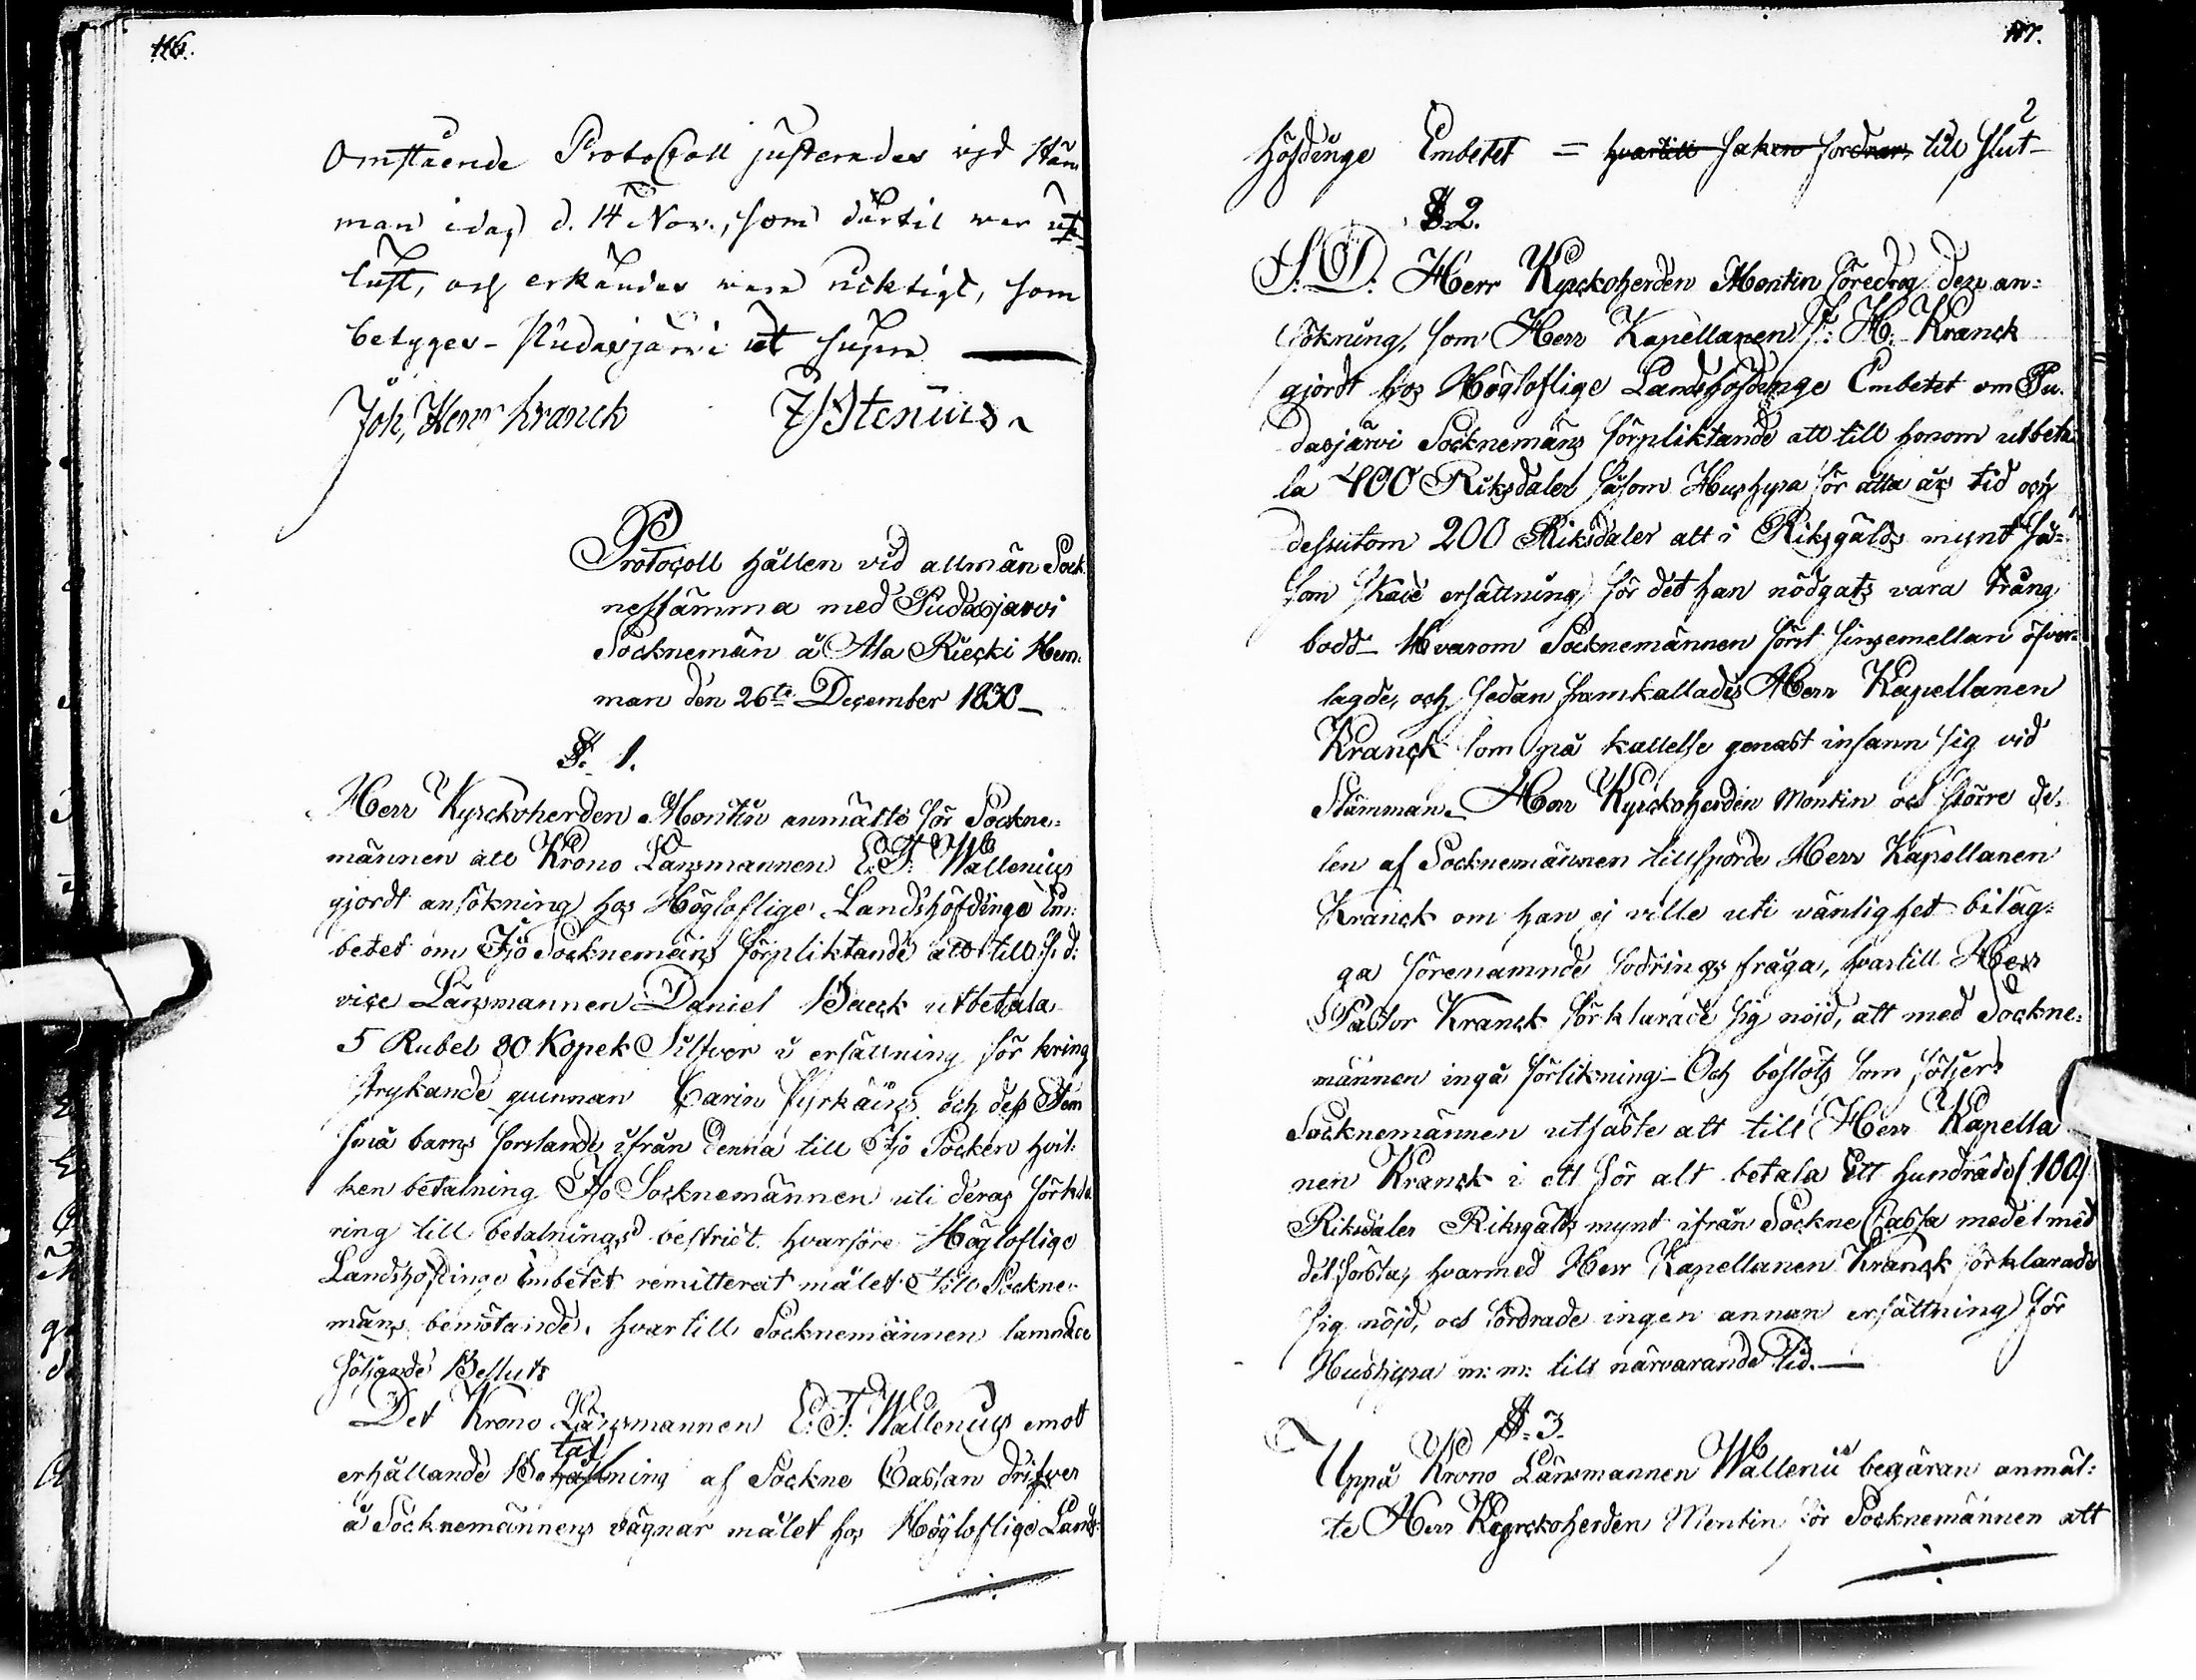 116.
Omstående Protocoll justerades vid stäm
man idag d. 14 Nov., som därtil war ut-
lyst, och erkändes vara richtigt, som
betyges – Pudasjärvi ut supra
Joh, Henr Kranck Z Stenius
Protocoll hållen vid allmän Sock
nestämma med Pudasjärvi
Socknemän å Ala Riecki Hem-
man den 26te December 1830 –
§. 1.
Herr Kyrckoherden Montin anmälte för Sockne-
männen att Krono Länsmannen E. F. Wallenius
gjordt ansökning hos Högloflige Landshöfdinge Em-
betet om Ijo Socknemäns förpliktande att till f. d.
vice Länsmannen Daniel Baeck utbetala
5 Rubel 80 Kopek Silfver i ersättning för kring
strykande quinnan Carin och dess
små barns forslande ifrån denna till Ijo Socken hvil-
ken betalning Ijo Socknemännen uti deras förkla
ring till betalning bestridt hvarföre Höglofliga
Landshöfdinge Embetet remitterat målet till Sockne-
mäns bemötande, hvartill Socknemännen lamnade
följande Besluts
Det Krono Länsmannen E. F. Wallenius emot
tal
erhållande Behållning af Sockne Cassan drifver
å Socknemännens vägnar målet hos Höglofliga Lands-
117.
2
höfdinge Embetet = hvartill saken fordrar, till slut –
§. 2.
S. D. Herr Kyrckoherden Montin föredrog den an-
sökning, som Herr Kapellanen J: H: Kranck
gjordt hos Höglöflige Landshöfdinge Embetet om Pu-
dasjärvi Socknemäns förpliktande att till honom utbeta
la 400 Riksdaler såsom Hushyra för åtta års tid och
dessutom 200 Riksdaler alt i Riksgälds mynt så-
som skade ersättning för det han nödgats vara trång
bodd – Hvarom Socknemännen först sinsemellan öfver-
lagde, och sedan framkallades Herr Kapellanen
Kranck som på kallelse genast infann sig vid
Stämman – Herr Kyrckoherden Montin och större de-
len af Socknemännen tillsporde Herr Kapellanen
Kranck om han ej ville uti vänlighet bilag-
ga förenamnde fodrings fråga, hvartill Herr
Pastor Kranck förklarade sig nöjd, att med Sockne-
männen ingå förlikning – Och beslöts som följer:
Socknemännen utfäste att till Herr Kapella
nen Kranck i ett för alt betala Ett hundrade (100)
Riksdaler Riksgälds mynt ifrån Sockne Cassa medel med
det första, hvarmed Herr Kapellanen Kranck förklarade
sig nöjd, och fordrade ingen annan ersättning för
Hushyra m: m: till närvarande tid. –
§. 3.
Uppå Krono Länsmannen Wallenii begäran anmäl-
te Herr Kyrckoherden Montin för Socknemännen att